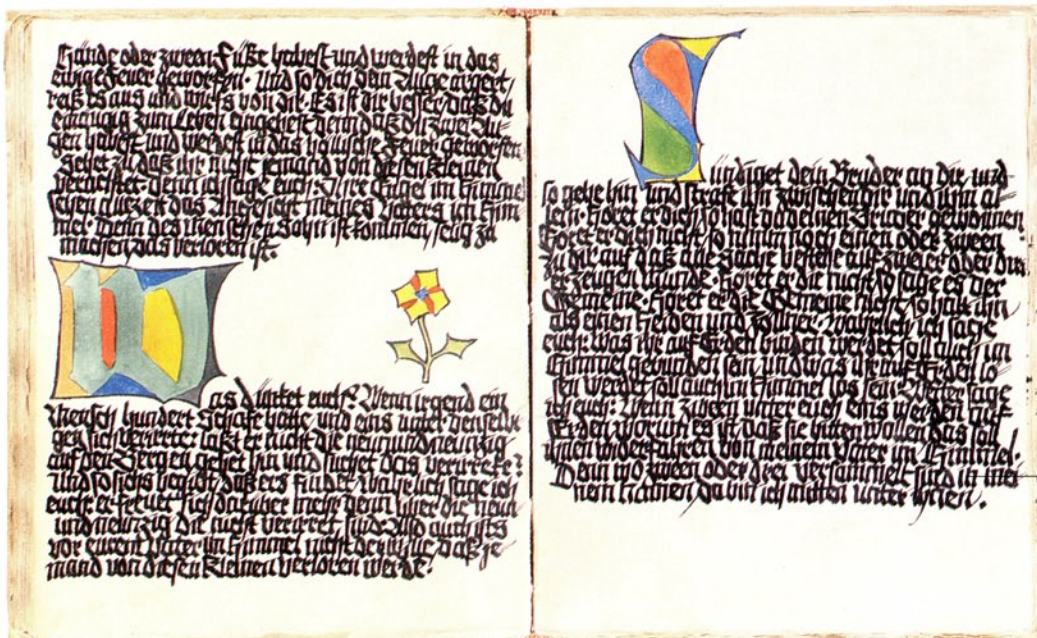 Hände oder zween Füße habest und werdest in das
ewige Feuer geworfen. Und so dich dein Auge ärgert,
reiß es aus und wirfs von dir. Es ist dir besser daß du
einäugig zum Leben eingehest denn daß du zwei Au-
gen habest und werdest in das höllische Feuer geworfen
Sehet zu daß ihr nicht jemand von diesen Kleinen
verachtet. denn ich sage euch: Ihre Engel im Himmel
sehen allezeit das Angesicht meines Vaters im Him-
mel. Denn des Menschen Sohn ist kommen, selig zu
machen das verloren ist.
Was dünket euch? Wenn irgend ein
Mensch hundert Schafe hätte und eins unter denselbi-
gen sich verirrete: läßt er nicht die neunundneunzig
auf den Bergen gehet hin und suchet das verirrete?
Und so sichs begibt daß ers findet wahrlich ich sage
euch: er freuet sich darüber mehr denn über die neun
und neunzig die nicht verirret sind. Also auch ists
vor eurem Vater im Himmel nicht der Wille, daß je-
mand von diesen Kleinen verloren werde.
Sündiget dein Bruder an dir, und
so gehe hin und strafe ihn zwischen dir und ihm al-
lein. Höret er dich, so hast du deinen Bruder gewonnen.
Höret er dich nicht, so nimm noch einen oder zween
zu dir auf daß alle Sache bestehe auf zweier oder drei-
er Zeugen Munde. Höret er die nicht, so sage es der
Gemeine. Höret er die Gemeine nicht, so halt ihn
als einen Heiden und Zöllner. Wahrlich ich sage
euch: Was ihr auf Erden binden werdet soll auch im
Himmel gebunden sein und was ihr auf Erden lö-
sen werdet soll auch im Himmel los sein. Weiter sage
ich euch: Wenn zween unter euch eins werden auf
Erden worum es ist daß sie bitten wollen das soll
ihnen widerfahren von meinem Vater im Himmel.
Denn wo zween oder drei versammelt sind in mei-
nem Namen, da bin ich mitten unter ihnen.